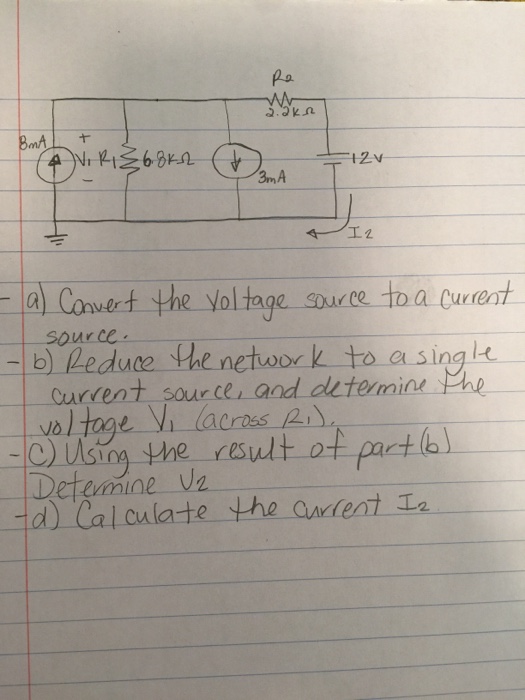 R2
2.2KΩ
8mA
+
V1 R1 6.8KΩ
-
3mA
12V
I2
- a) Convert the voltage source to a current
source.
- b) Reduce the network to a single
current source, and determine the
voltage V1 (across R1).
- C) Using the result of part (b)
Determine V2
- d) Calculate the current I2